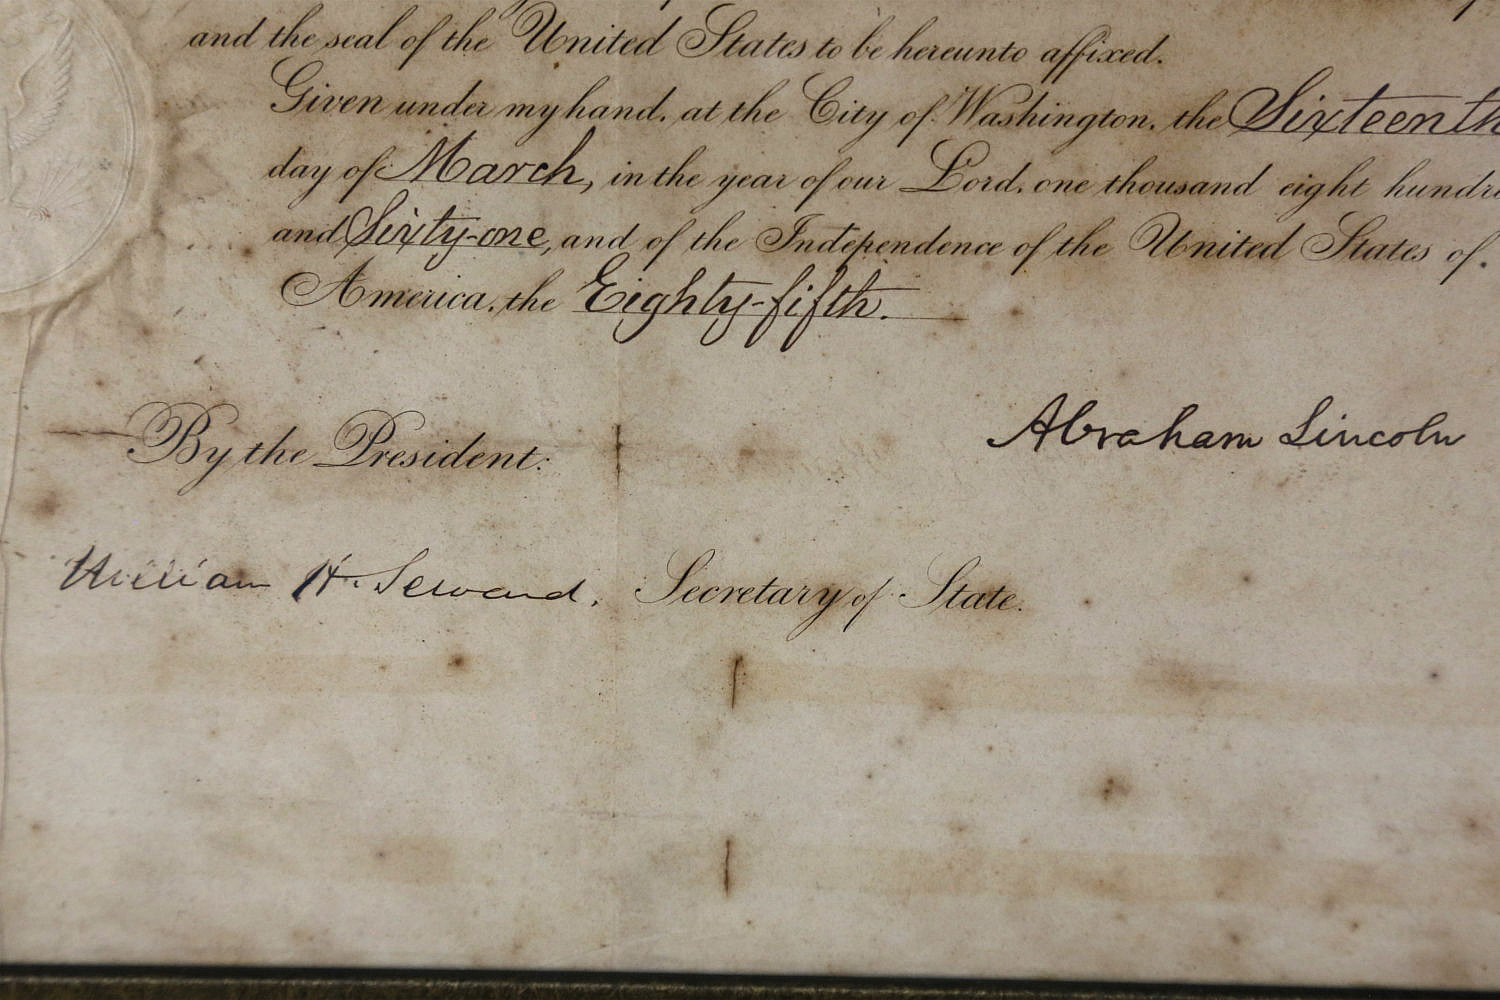 and the seal of the United States to be hereunto affixed.
Given under my hand, at the City of Washington, the Sixteenth
day of March, in the year of our Lord, one thousand eight hundre
and Sixty-one, and of the Independence of the United States of
America, the Eighty-fifth.
Abraham Lincoln
By the President:
William H. Seward, Secretary of State.